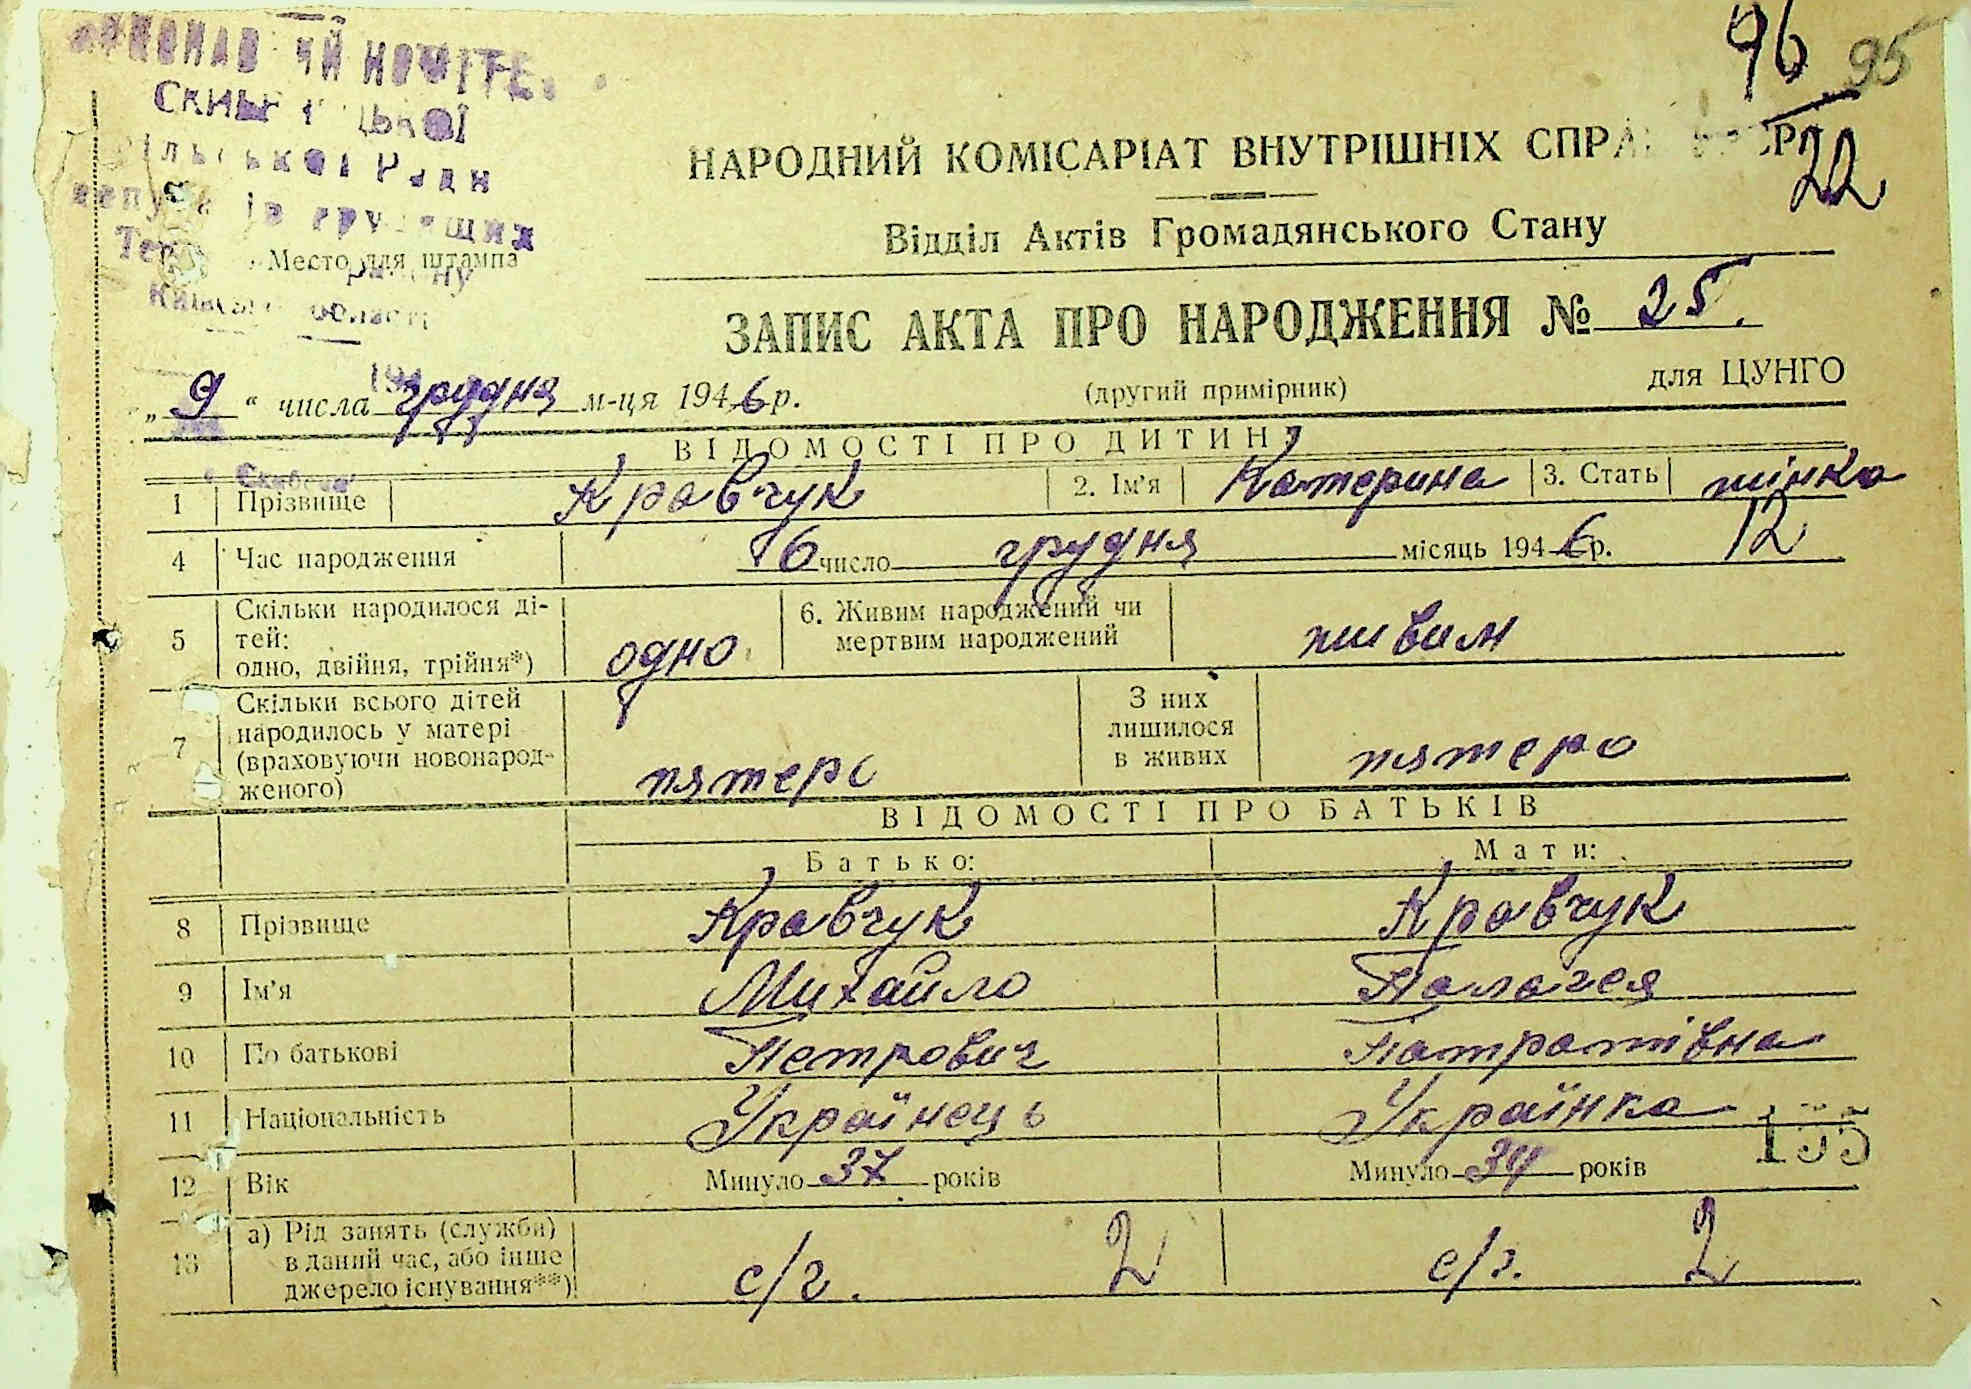 96 95
22
НАРОДНИЙ КОМІСАРІАТ ВНУТРІШНІХ СПРАВ
Відділ Актів Громадянського Стану
Место для штампа
області
ЗАПИС АКТА ПРО НАРОДЖЕННЯ № 25.
„9“ числа грудня м-ця 1946 р.
(другий примірник)
для ЦУНГО
ВІДОМОСТІ ПРО ДИТИНУ
1 Прізвище Кравчук 2. Ім'я Катерина 3. Стать жінка
4 Час народження 6 число грудня місяць 1946 р. 12
5 Скільки народилося ді-
тей:
одно, двійня, трійня*) одно
6. Живим народжений чи
мертвим народжений живим
7 Скільки всього дітей
народилось у матері
(враховуючи новонарод-
женого) пятеро
З них
лишилося
в живих пятеро
ВІДОМОСТІ ПРО БАТЬКІВ
Батько: Мати:
8 Прізвище Кравчук Кравчук
9 Ім'я Михайло Палагея
10 По батькові Петрович
11 Національність Українець Українка
155
12 Вік Минуло 37 років Минуло 34 років
13 а) Рід занять (служби)
в даний час, або інше
джерело існування**) с/г. 2 с/г. 2